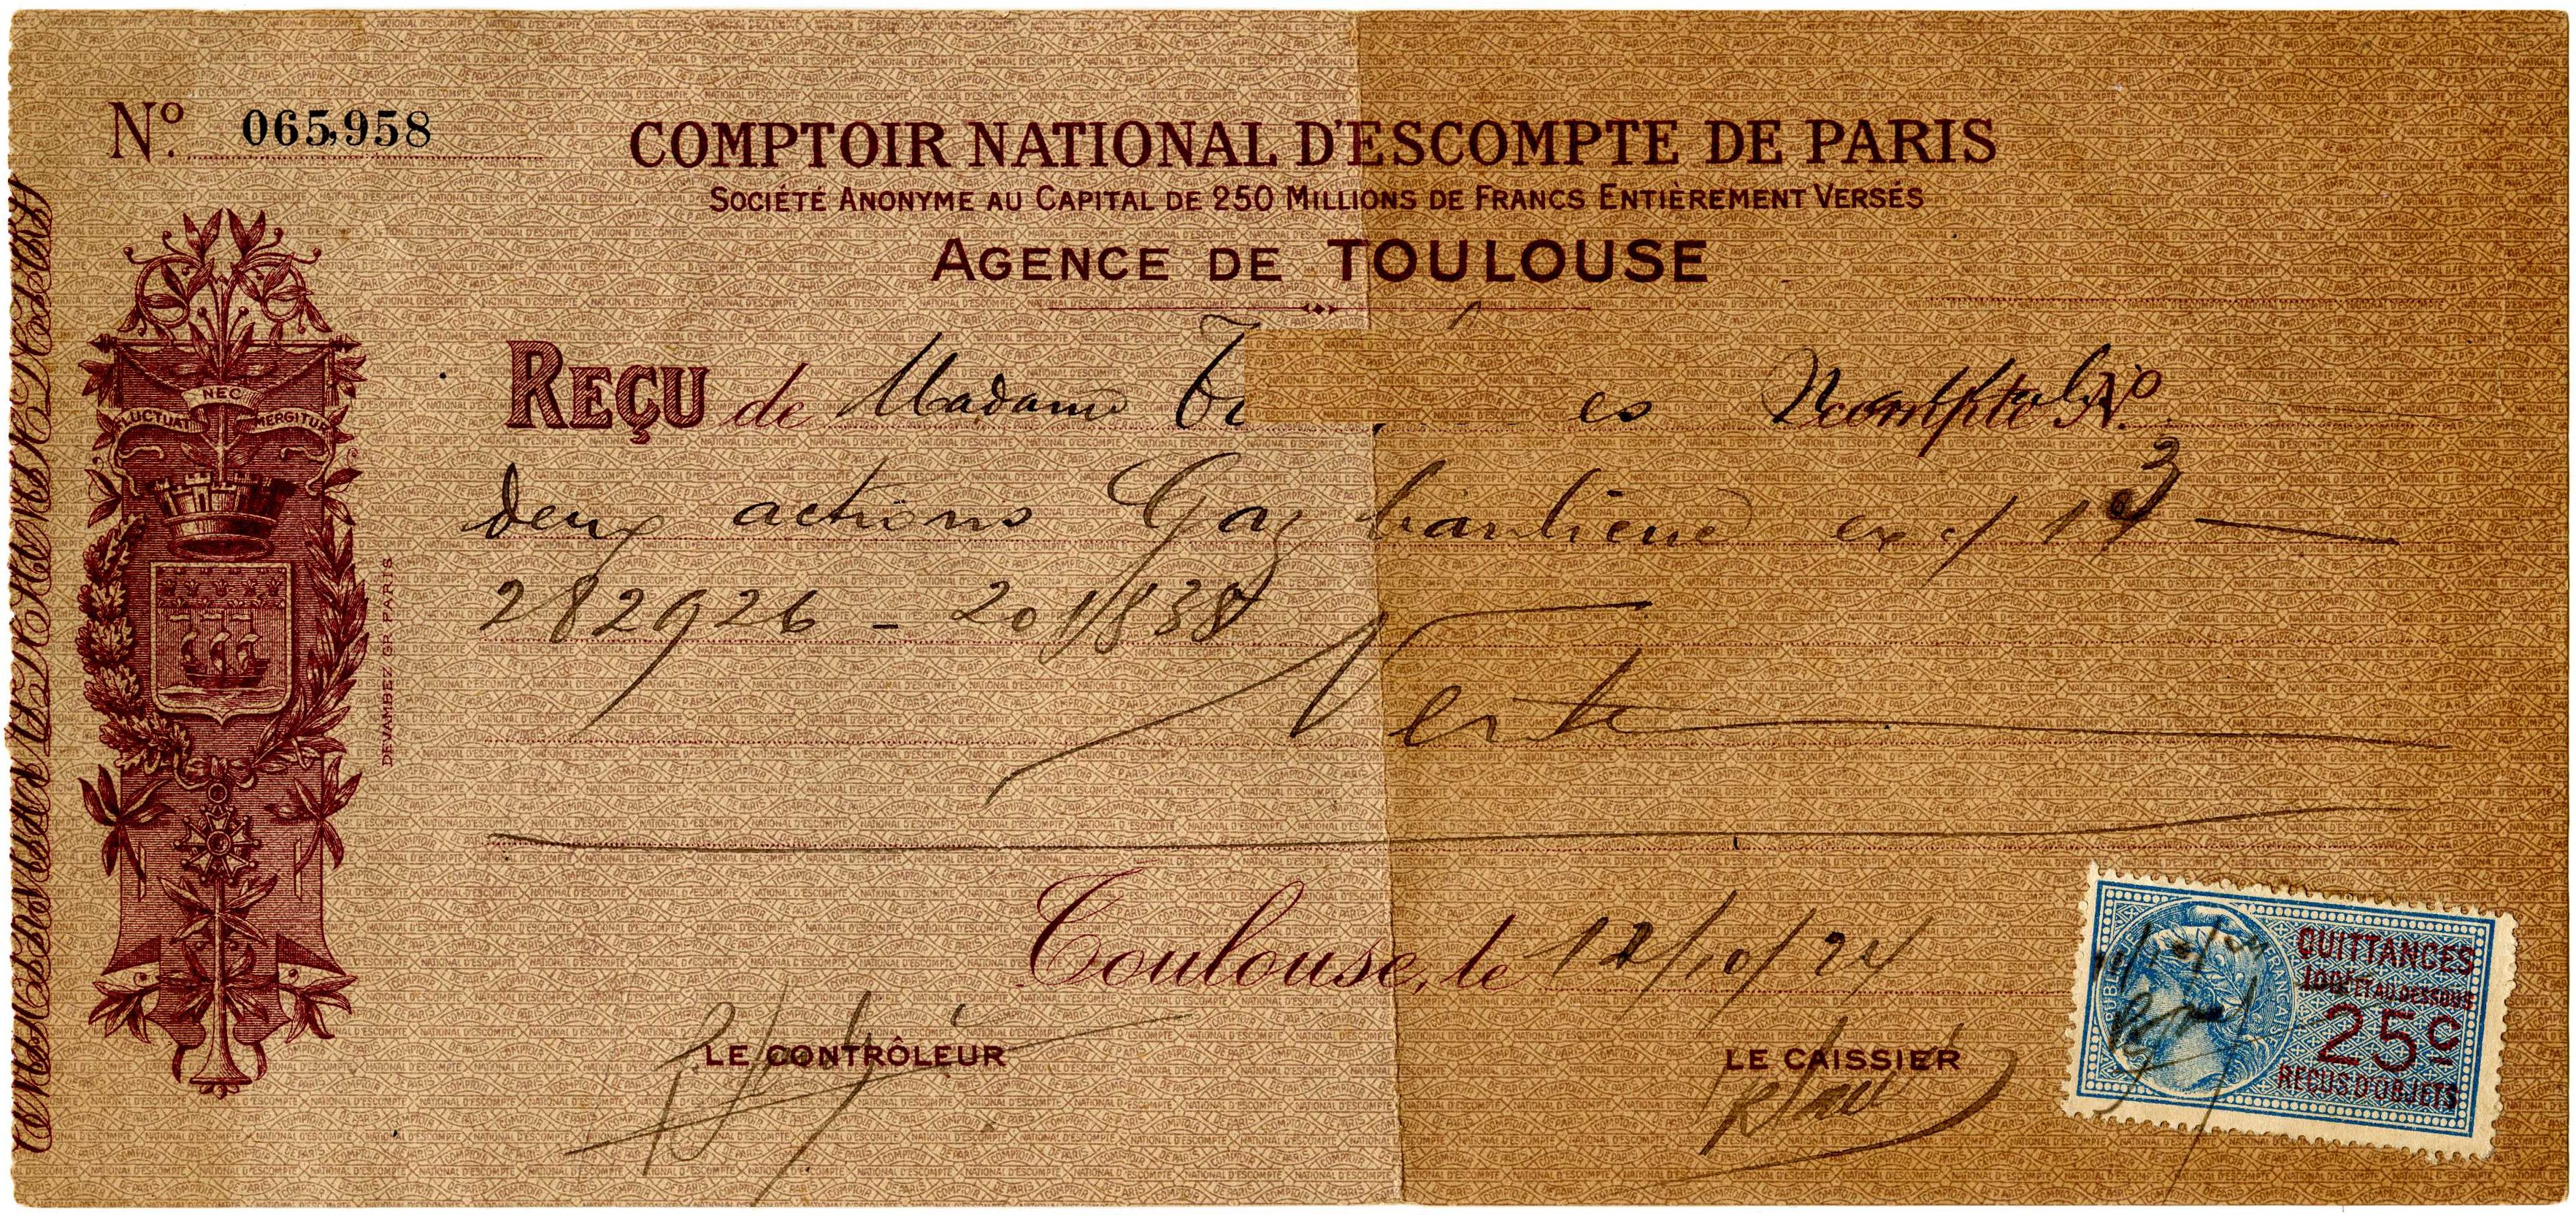 Nº 065,958
COMPTOIR NATIONAL D'ESCOMPTE DE PARIS
SOCIÉTÉ ANONYME AU CAPITAL DE 250 MILLIONS DE FRANCS ENTIÈREMENT VERSÉS
AGENCE DE TOULOUSE
REÇU de Madame compte Nº
deux actions Gaz banlieue ex c/
282926 - 201838
Verte
FLUCTUAT NEC MERGITUR
DEVAMBEZ GR PARIS
Toulouse, le 12/10/24
LE CONTRÔLEUR
LE CAISSIER
QUITTANCES
100F ET AU DESSOUS
25c
REÇUS D'OBJETS